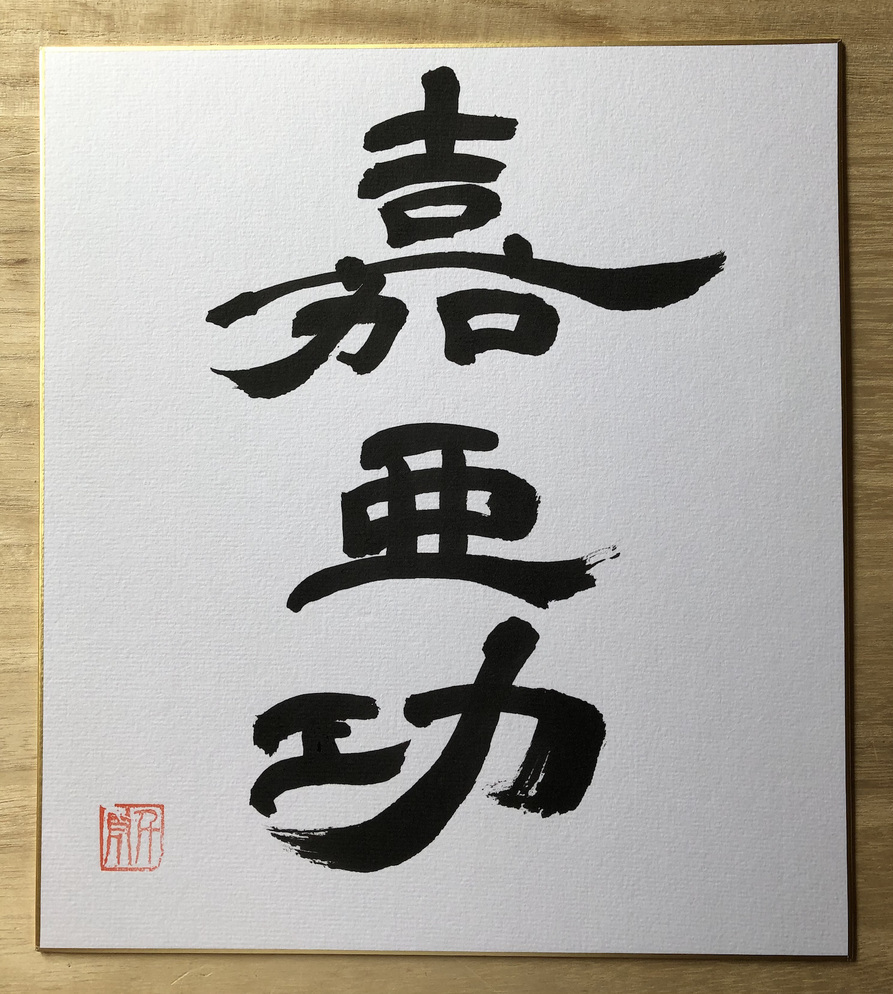 嘉亜功